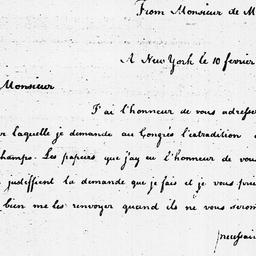 From Monsieur de M
A New York le 10 fevrier
Monsieur
J'ai l'honneur de vous adresser
laquelle je demande au Congrés l'extradition
champs. Les papiers que j'ay eu l'honneur de vou
justeffient la demande que je fais et je vous prie
bien me les renvoyer quand ils ne vous seron